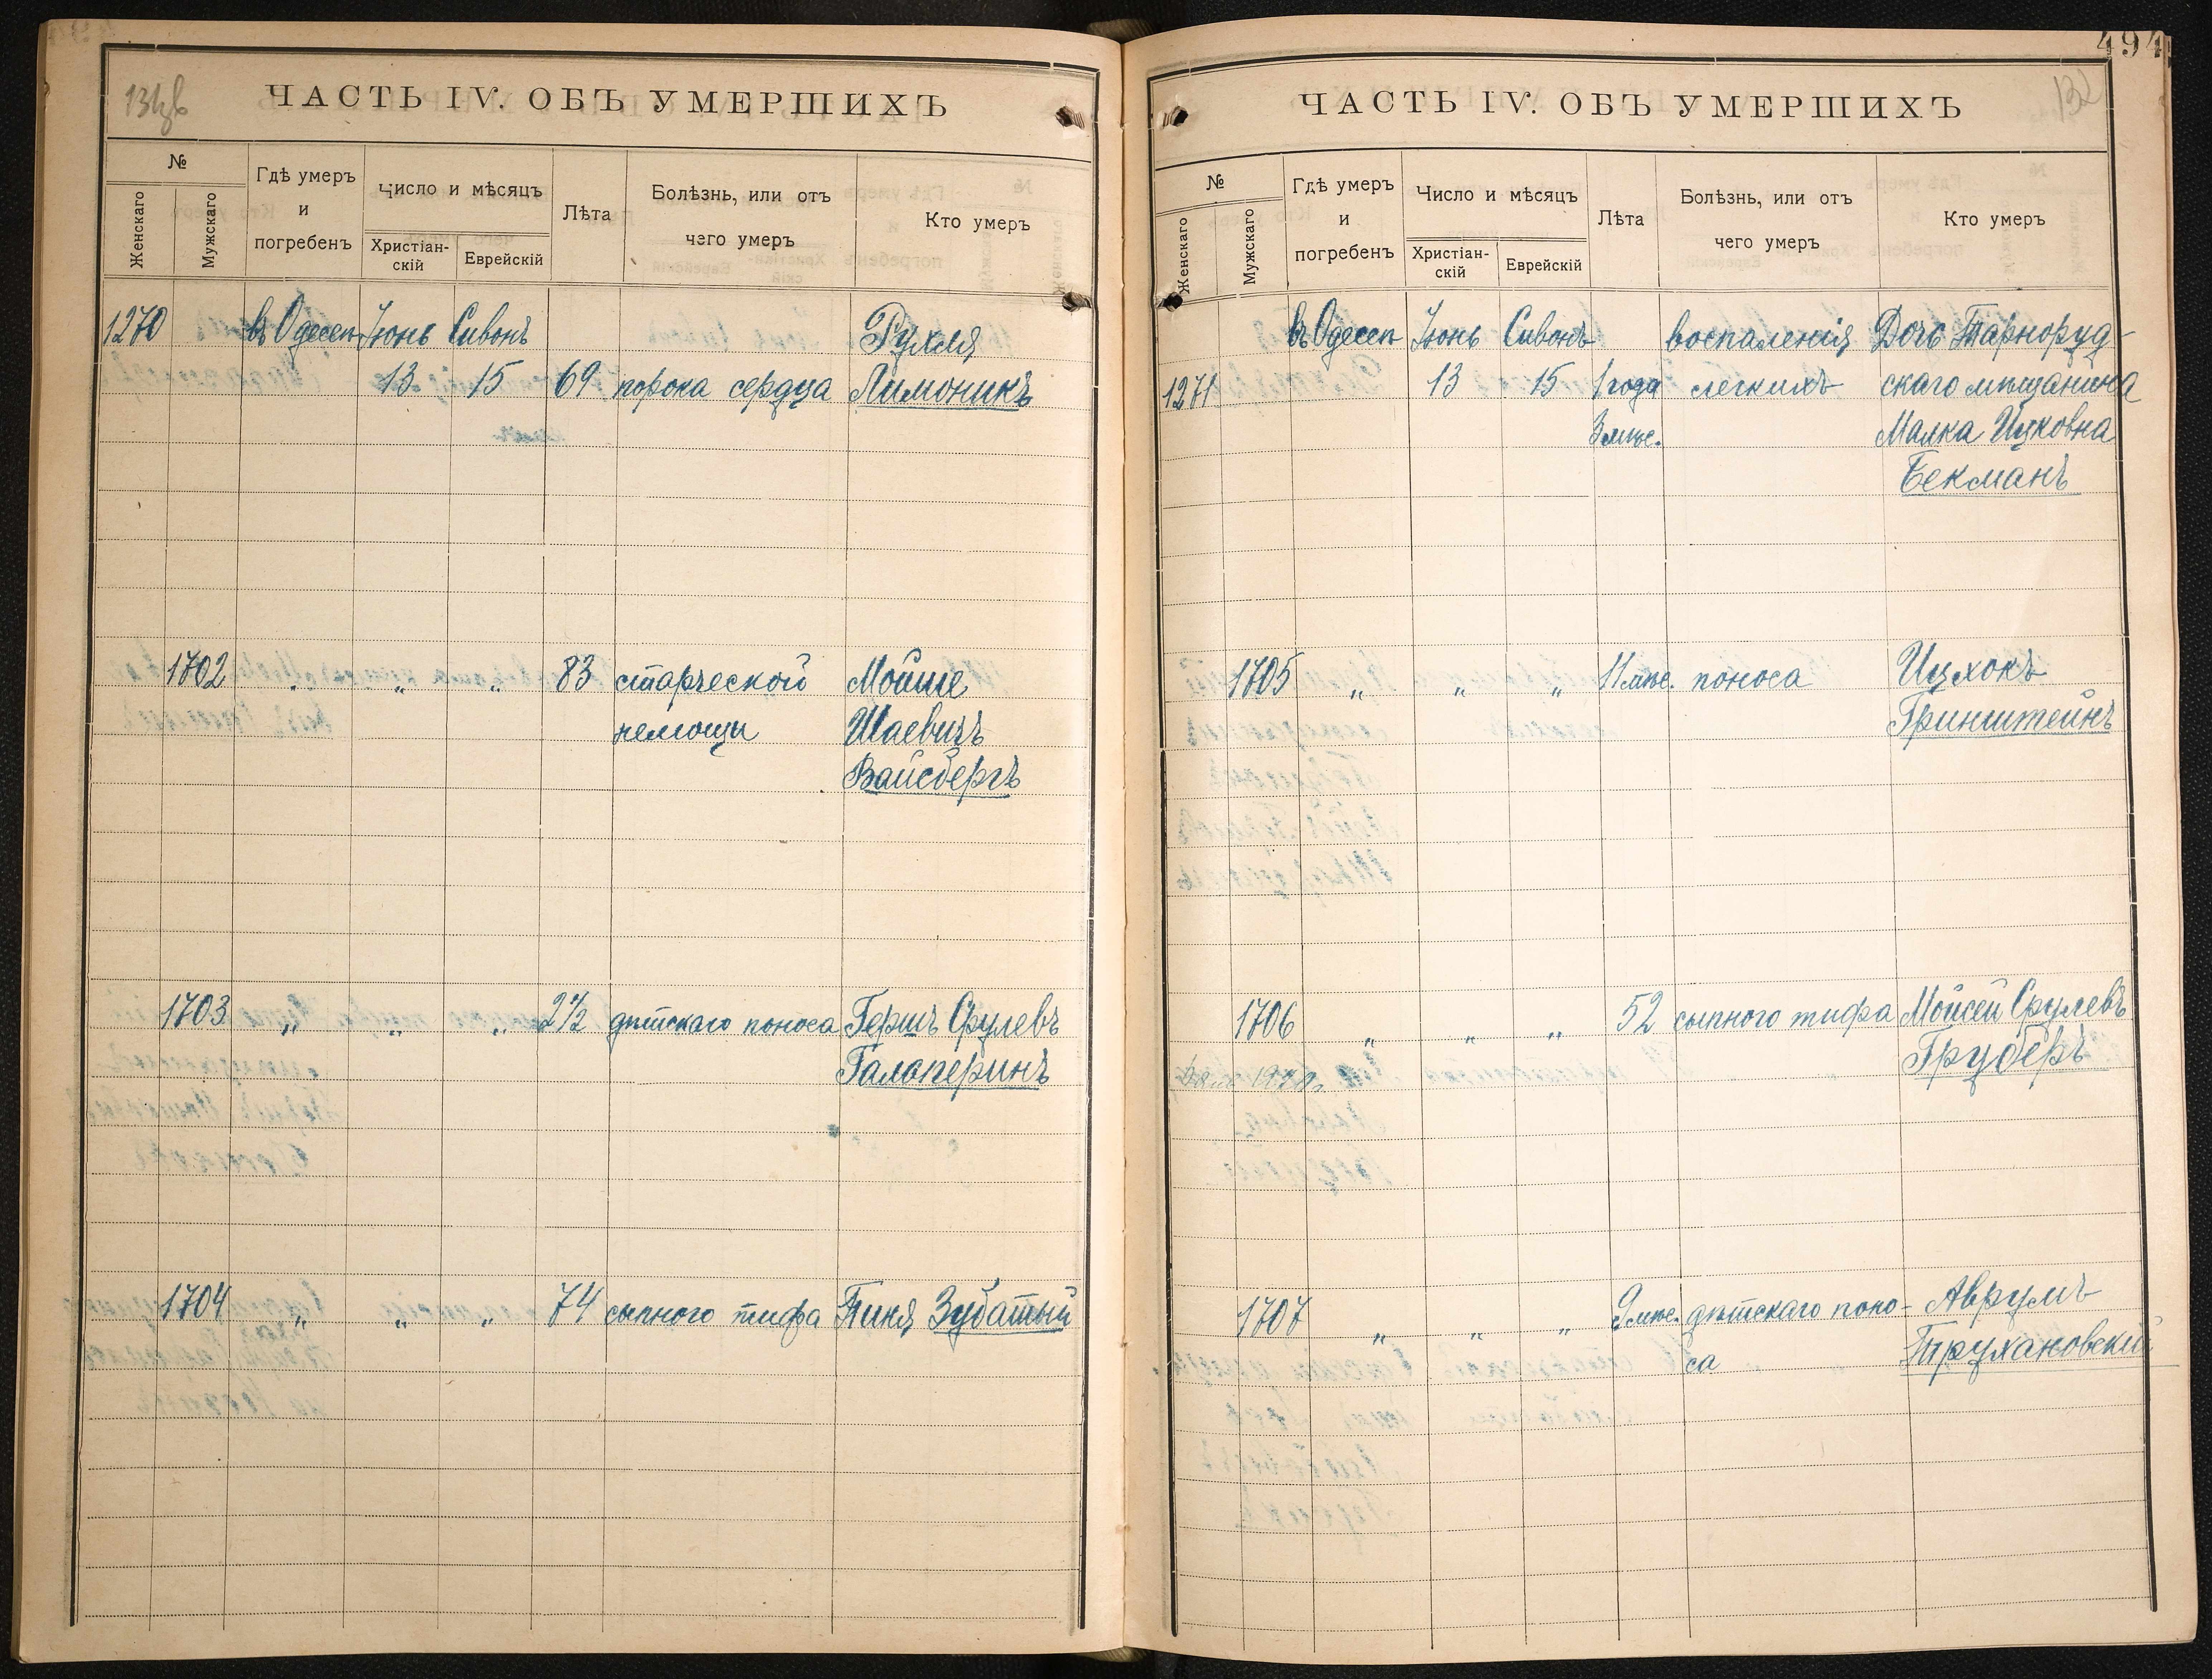 ЧАСТЬ IV. ОБЪ УМЕРШИХЪ
№
Женскаго
Мужскаго
Гдѣ умеръ
и
погребенъ
Число и мѣсяцъ
Христіан-
скій
Еврейскій
Лѣта
Болѣзнь, или отъ
чего умеръ
Кто умеръ
1270 въ Одессѣ Іюнь Сивонъ Рухля
13 15 69 порока сердца Лимоникъ
1702 „ „ „ 83 старческой Мойше
немощи Шаевичъ
Вайсбергъ
1703 „ „ „ 2½ дѣтскаго поноса Гершъ Срулевъ
Галаперинъ
1704 „ „ „ 74 сыпного тифа Пиня Зубатый
494
132
ЧАСТЬ IV. ОБЪ УМЕРШИХЪ
№
Женскаго
Мужскаго
Гдѣ умеръ
и
погребенъ
Число и мѣсяцъ
Христіан-
скій
Еврейскій
Лѣта
Болѣзнь, или отъ
чего умеръ
Кто умеръ
въ Одессѣ Іюнь Сивонъ воспаленія Дочь Тарноруд-
1271 13 15 1 года легкихъ скаго мѣщанина
3 мѣс. Малка Ицковна
Бекманъ
1705 „ „ „ 11 мѣс. поноса Ицхокъ
Гринштейнъ
1706 „ „ „ 52 сыпного тифа Мойсей Срулевъ
Груберъ
1707 „ „ „ 9 мѣс. дѣтскаго поно- Аврумъ
са Трухановскій